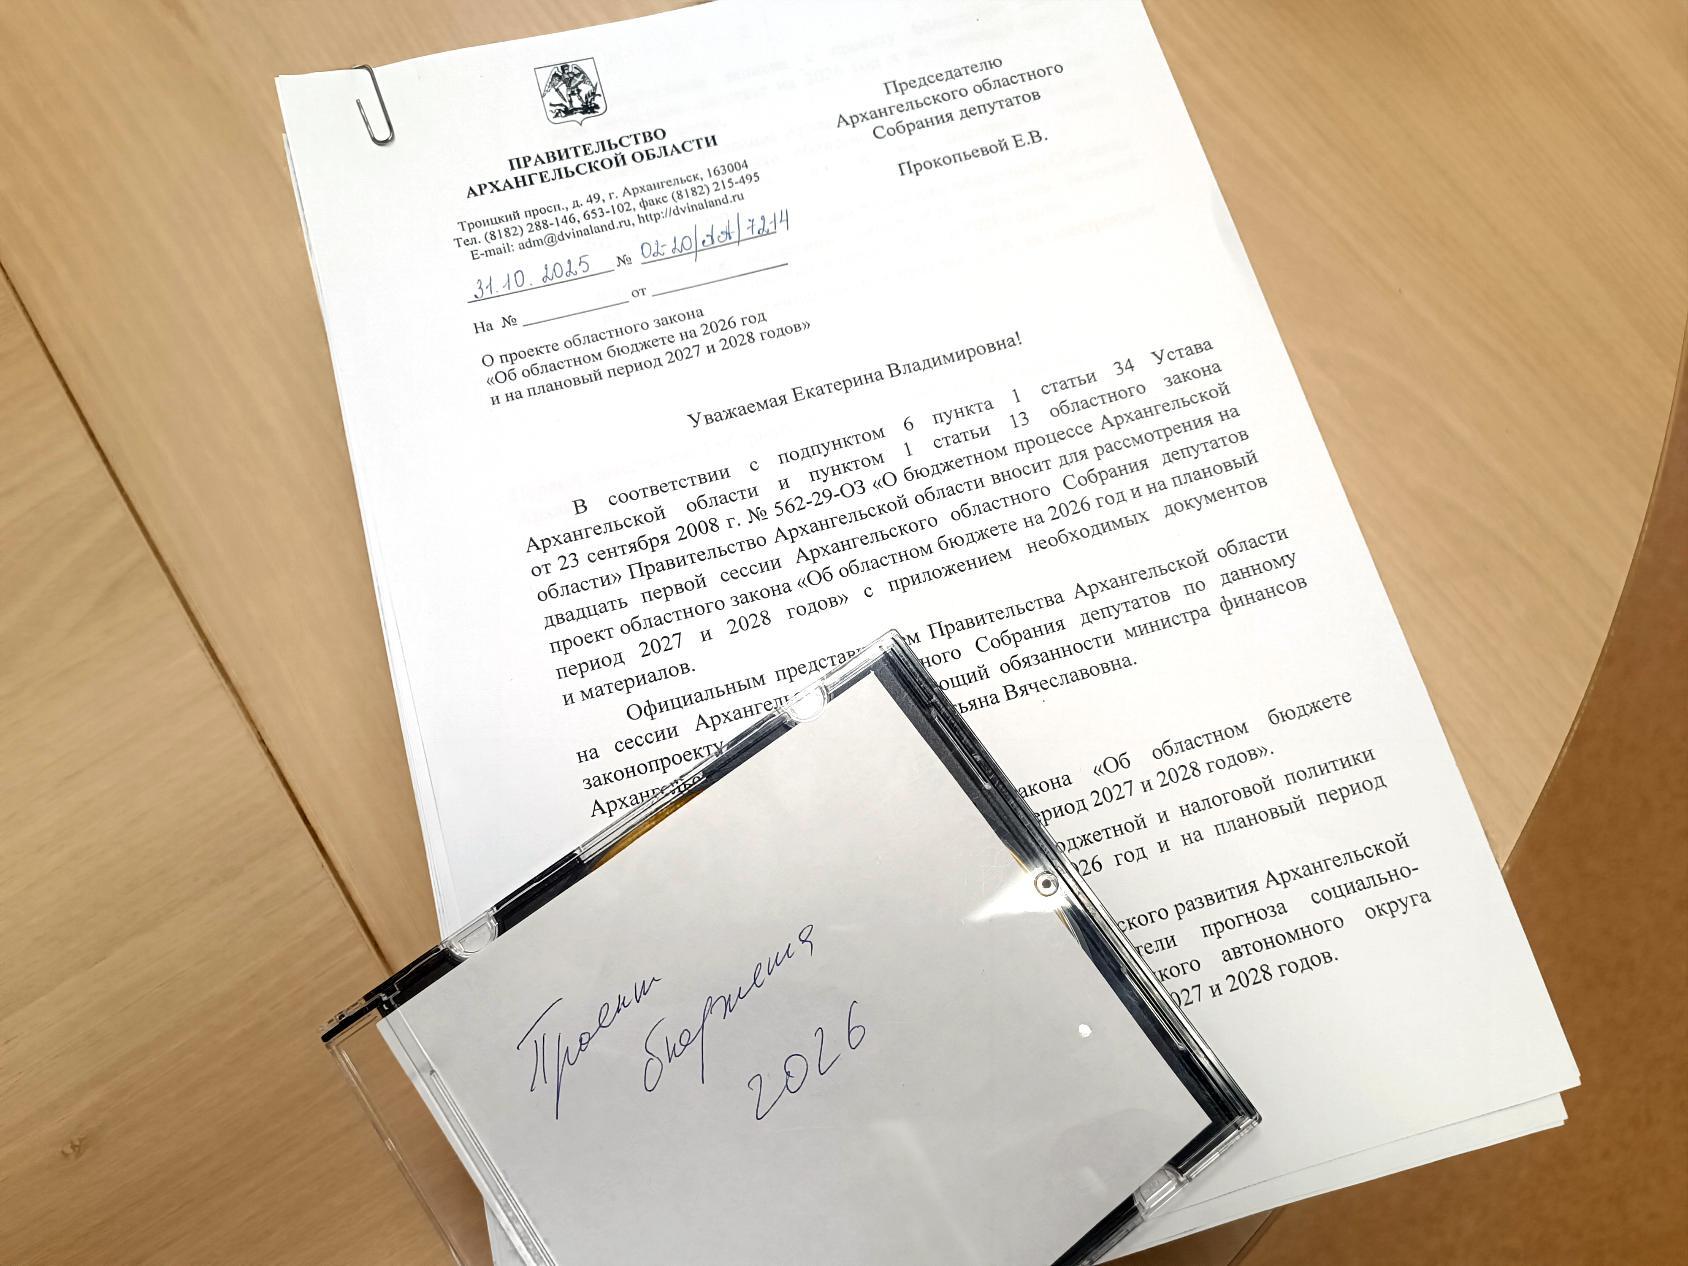 ПРАВИТЕЛЬСТВО
АРХАНГЕЛЬСКОЙ ОБЛАСТИ
Троицкий просп., д. 49, г. Архангельск, 163004
Тел. (8182) 288-146, 653-102, факс (8182) 215-495
E-mail: adm@dvinaland.ru, http://dvinaland.ru
31.10.2025 № 02-20/АА/7214
На № от
О проекте областного закона
«Об областном бюджете на 2026 год
и на плановый период 2027 и 2028 годов»
Председателю
Архангельского областного
Собрания депутатов
Прокопьевой Е.В.
Уважаемая Екатерина Владимировна!
В соответствии с подпунктом 6 пункта 1 статьи 34 Устава
Архангельской области и пунктом 1 статьи 13 областного закона
от 23 сентября 2008 г. № 562-29-ОЗ «О бюджетном процессе Архангельской
области» Правительство Архангельской области вносит для рассмотрения на
двадцать первой сессии Архангельского областного Собрания депутатов
проект областного закона «Об областном бюджете на 2026 год и на плановый
период 2027 и 2028 годов» с приложением необходимых документов
и материалов.
Официальным Правительства Архангельской области
на сессии Собрания депутатов по данному
законопроекту обязанности министра финансов
Вячеславовна.
«Об областном бюджете
2027 и 2028 годов».
и налоговой политики
год и на плановый период
развития Архангельской
прогноза социально-
автономного округа
и 2028 годов.
Проект
бюджета
2026